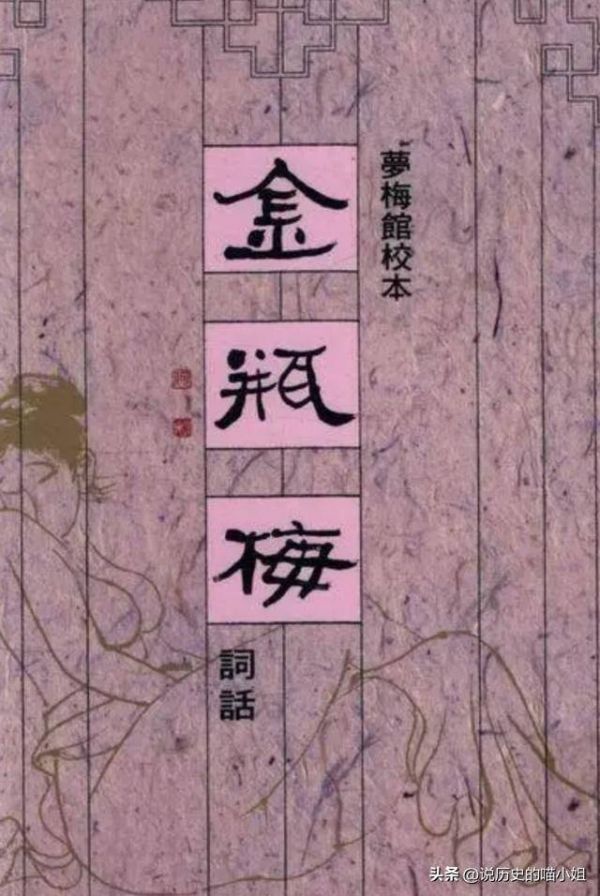 夢梅館校本
金
瓶
梅
詞話
头条 @说历史的喵小姐